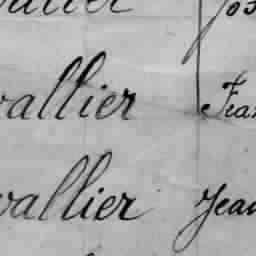 vallier Jos
vallier Fran
vallier Jean